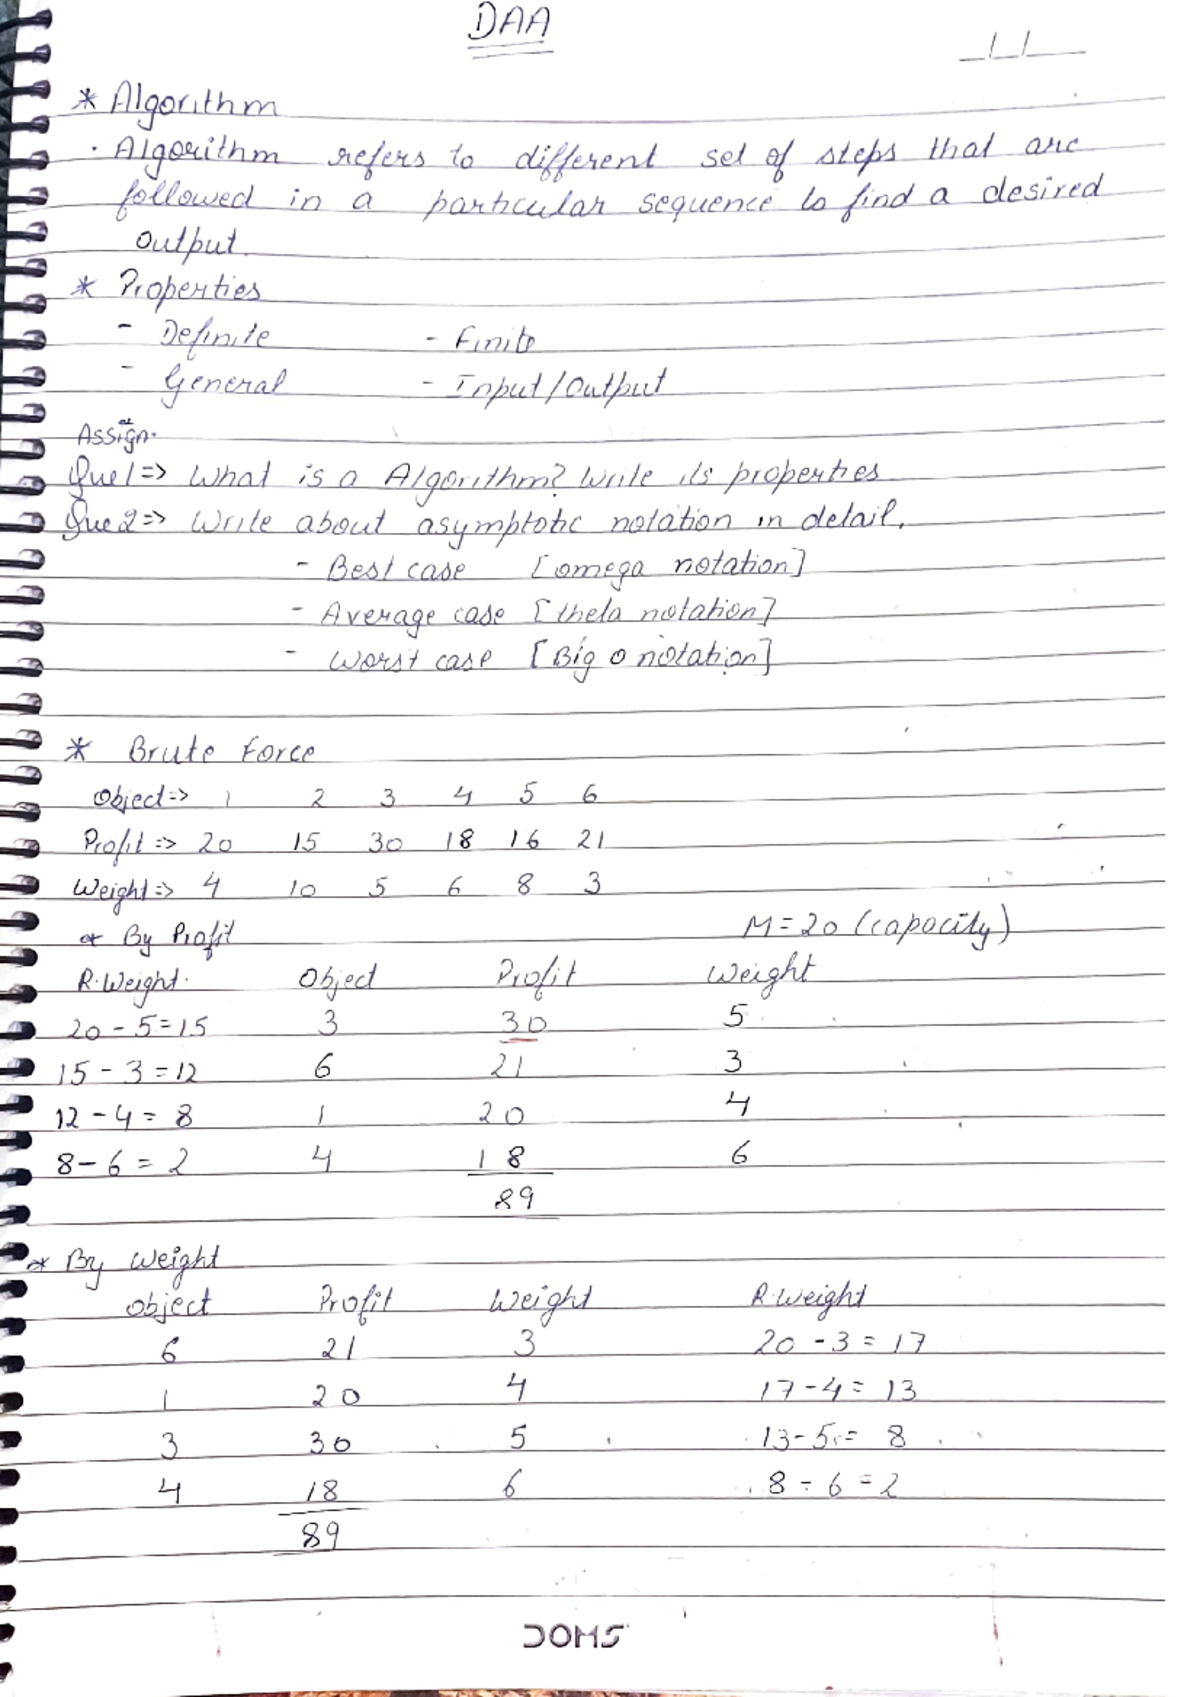 DAA
* Algorithm
. Algorithm refers to different set of steps that are
followed in a particular sequence to find a desired
output.
* Properties
- Definite - Finite
- General - Input/Output
Assign.
Que1=> What is a Algorithm? Write its properties
Que2=> Write about asymptotic notation in detail.
- Best case [omega notation]
- Average case [theta notation]
- Worst case [Big O notation]
* Brute Force
Object=> 1 2 3 4 5 6
Profit=> 20 15 30 18 16 21
Weight=> 4 10 5 6 8 3
* By Profit M=20 (capacity)
R.Weight. Object Profit Weight
20-5=15 3 30 5
15-3=12 6 21 3
12-4=8 1 20 4
8-6=2 4 18 6
89
* By Weight
Object Profit Weight R.Weight
6 21 3 20-3=17
1 20 4 17-4=13
3 30 5 13-5=8
4 18 6 8-6=2
89
DOMS